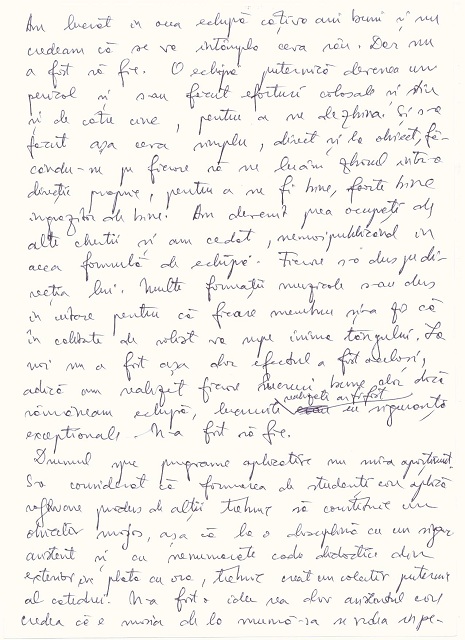 Am lucrat în acea echipă câțiva ani buni și nu
credeam că se va întâmpla ceva rău. Dar nu
a fost să fie. O echipă puternică devenea un
pericol și s-au făcut eforturi colosale și știu
și de către cine, pentru a ne dezghina. Și s-a
făcut așa ceva simplu, direct și la obiect, fă-
cându-ne pe fiecare să ne luăm zborul într-o
direcție proprie, pentru a ne fi bine, foarte bine
îngrozitor de bine. Am devenit prea ocupați de
alte chestii și am cedat, nemaipublicând în
acea formulă de echipă. Fiecare s-a dus pe di-
recția lui. Multe formații muzicale s-au dus
în uitare pentru că fiecare membru și-a zis că
în calitate de solist va rupe inima târgului. La
noi nu a fost așa dar efectul a fost același,
adică am realizat fiecare lucruri bune dar dacă
rămâneam echipă, lucrurile realizate ar fi fost cu siguranță
excepționale. N-a fost să fie.
Drumul spre programe aplicative nu mi-a aparținut.
S-a considerat că formarea de studenți care aplică
software produs de alții trebuie să constituie un
obiectiv major, așa că la o disciplină cu un singur
asistent și cu nenumărate cadre didactice din
exterior prin plata cu ora, trebuie creat un colectiv puternic
al catedrei. N-a fost o idee rea dar asistentul care
credea că e moșia de la mumă-sa se vedea